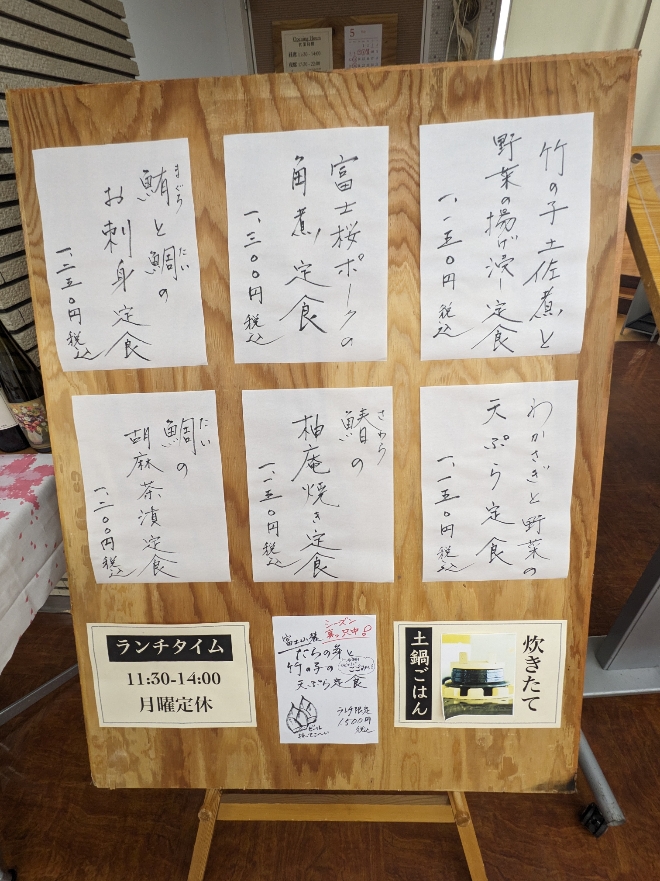 竹の子土佐煮と
野菜の揚げ浸し定食
一、一五〇円 税込
富士桜ポークの
角煮定食
一、三〇〇円 税込
まぐろ たい
鮪と鯛の
お刺身定食
一、二五〇円 税込
わかさぎと野菜の
天ぷら定食
一、一五〇円 税込
さわら
鰆の
柚庵焼き定食
一、一五〇円 税込
たい
鯛の
胡麻茶漬定食
一、二〇〇円 税込
ランチタイム
11:30-14:00
月曜定休
シーズン
真っ只中!
富士山麓
たらの芽と
竹の子の
天ぷら定食
ランチ限定
1500円
税込
炊きたて
土鍋ごはん
5